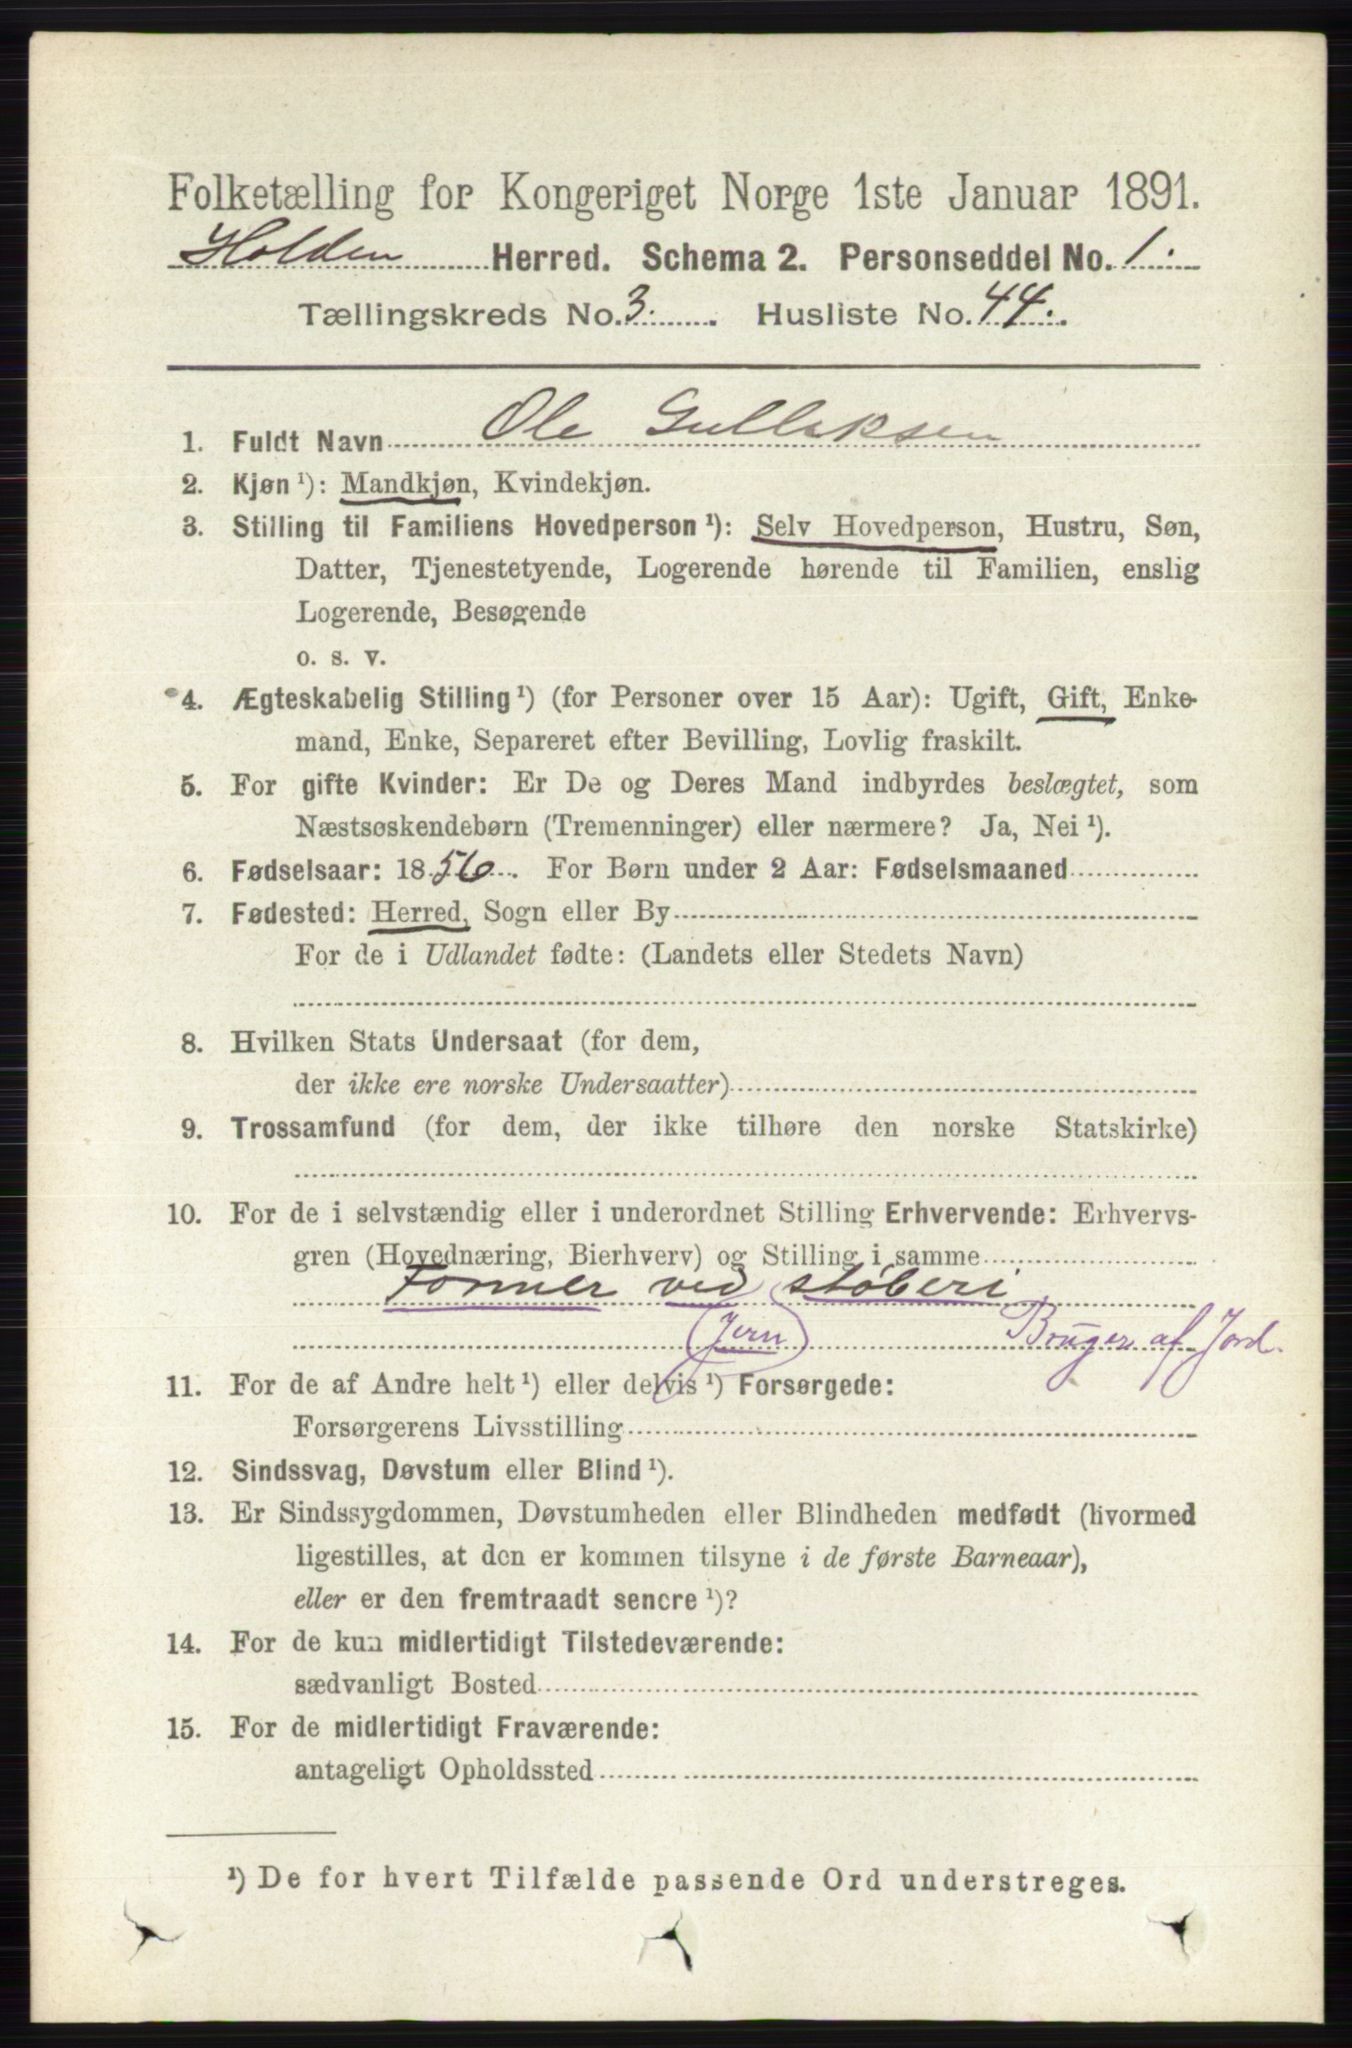 Folketælling for Kongeriget Norge 1ste Januar 1891.
Holden Herred. Schema 2. Personseddel No. 1.
Tællingskreds No. 3. Husliste No. 44.
1. Fuldt Navn Ole Gullaksen
2. Kjøn ¹): Mandkjøn, Kvindekjøn.
3. Stilling til Familiens Hovedperson ¹): Selv Hovedperson, Hustru, Søn,
Datter, Tjenestetyende, Logerende hørende til Familien, enslig
Logerende, Besøgende
o. s. v.
4. Ægteskabelig Stilling ¹) (for Personer over 15 Aar): Ugift, Gift, Enke-
mand, Enke, Separeret efter Bevilling, Lovlig fraskilt.
5. For gifte Kvinder: Er De og Deres Mand indbyrdes beslægtet, som
Næstsøskendebørn (Tremenninger) eller nærmere? Ja, Nei ¹).
6. Fødselsaar: 1856. For Børn under 2 Aar: Fødselsmaaned
7. Fødested: Herred, Sogn eller By
For de i Udlandet fødte: (Landets eller Stedets Navn)
8. Hvilken Stats Undersaat (for dem,
der ikke ere norske Undersaatter)
9. Trossamfund (for dem, der ikke tilhøre den norske Statskirke)
10. For de i selvstændig eller i underordnet Stilling Erhvervende: Erhvervs-
gren (Hovednæring, Bierhverv) og Stilling i samme
Former ved støberi
Jern Bruger af Jord.
11. For de af Andre helt ¹) eller delvis ¹) Forsørgede:
Forsørgerens Livsstilling
12. Sindssvag, Døvstum eller Blind ¹).
13. Er Sindssygdommen, Døvstumheden eller Blindheden medfødt (hvormed
ligestilles, at den er kommen tilsyne i de første Barneaar),
eller er den fremtraadt senere ¹)?
14. For de kun midlertidigt Tilstedeværende:
sædvanligt Bosted
15. For de midlertidigt Fraværende:
antageligt Opholdssted
¹) De for hvert Tilfælde passende Ord understreges.